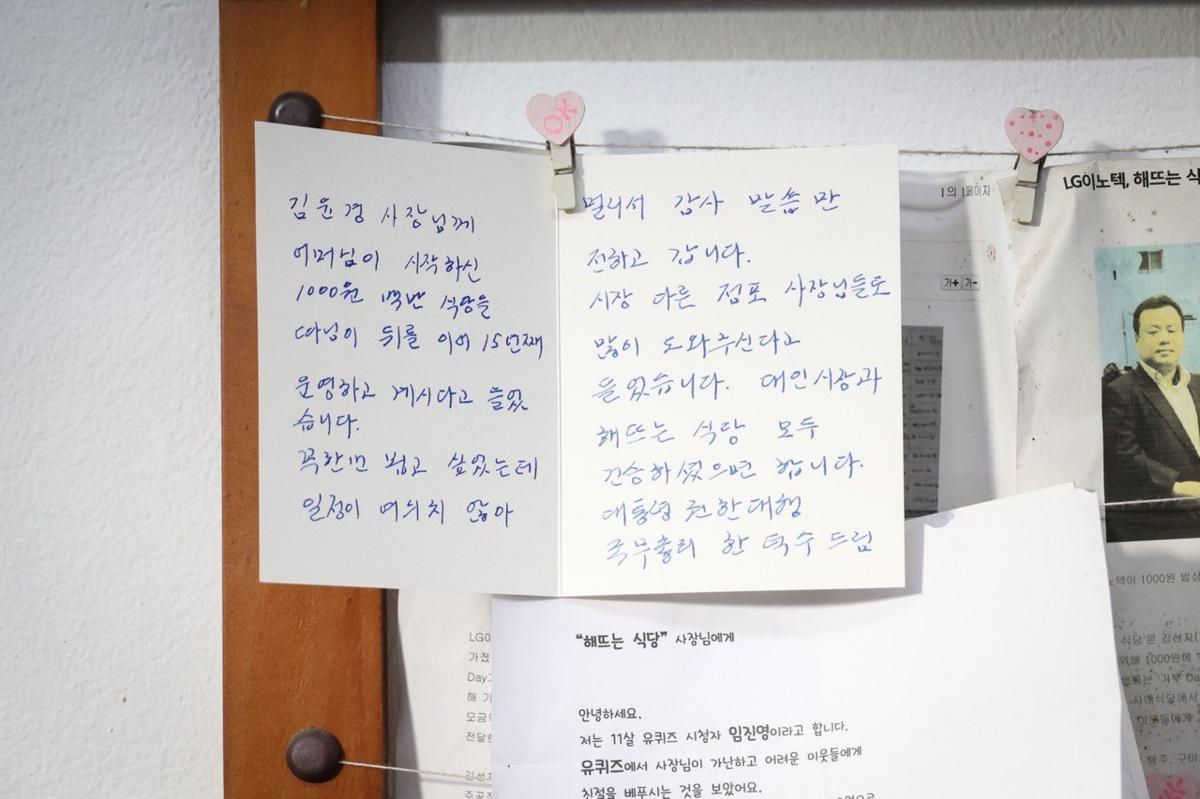 김윤경 사장님께
어머님이 시작하신
1000원 백반 식당을
따님이 뒤를 이어 15년째
운영하고 계시다고 들었
습니다.
꼭한번 뵙고 싶었는데
일정이 여의치 않아
멀리서 감사 말씀만
전하고 갑니다.
시장 다른 점포 사장님들도
많이 도와주신다고
들었습니다. 대인시장과
해뜨는 식당 모두
건승하셨으면 합니다.
대통령 권한대행
국무총리 한덕수 드림
OK
1의 1페이지
가+ 가-
LG이노텍, 해뜨는 식
"해뜨는 식당" 사장님에게
안녕하세요.
저는 11살 유퀴즈 시청자 임진영이라고 합니다.
유퀴즈에서 사장님이 가난하고 어려운 이웃들에게
친절을 베푸시는 것을 보았어요.
LG이
가졌
Day
해 기
모금
전달
김선자
주공
노텍이 1000원 밥상
식당'은 김선자(
위해 1000원에
'기부 Da
식당에서
이웃들에게
광주, 구미